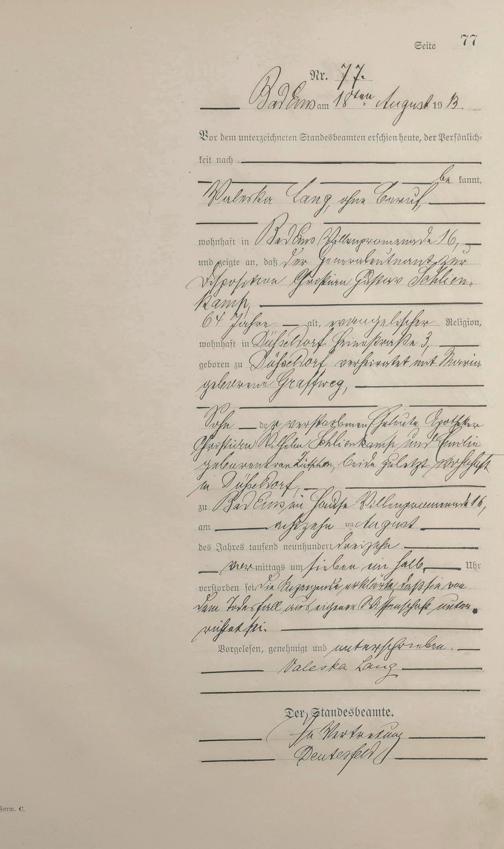 Seite 77
Nr. 77.
Bad Ems am 18ten August 1913.
Vor dem unterzeichneten Standesbeamten erschien heute, der Persönlich-
keit nach
be kannt,
Valeska Lang, ohne Beruf,
wohnhaft in Bad Ems Villenpromenade 16,
und zeigte an, daß der Generalleutnant zur
Disposition Christian Gustav Schlien-
kamp,
64 Jahre alt, evangelischer Religion,
wohnhaft in Düsseldorf 3,
geboren zu Düsseldorf verheiratet mit Maria
geborene Graffweg,
Sohn der verstorbenen Eheleute, Apotheker
Christian Wilhelm Schlienkamp und Emilie
geborene von, beide zuletzt wohnhaft
in Düsseldorf,
zu Bad Ems, im Hause Villenpromenade 16,
am achtzehn ten August
des Jahres tausend neunhundert dreizehn
vor mittags um sieben ein halb Uhr
verstorben sei. Die Anzeigende erklärte, daß sie von
dem Todesfall aus eigener Wissenschaft unter-
richtet sei.
Vorgelesen, genehmigt und unterschrieben.
Valeska Lang
Der Standesbeamte.
In Vertretung
Form. C.